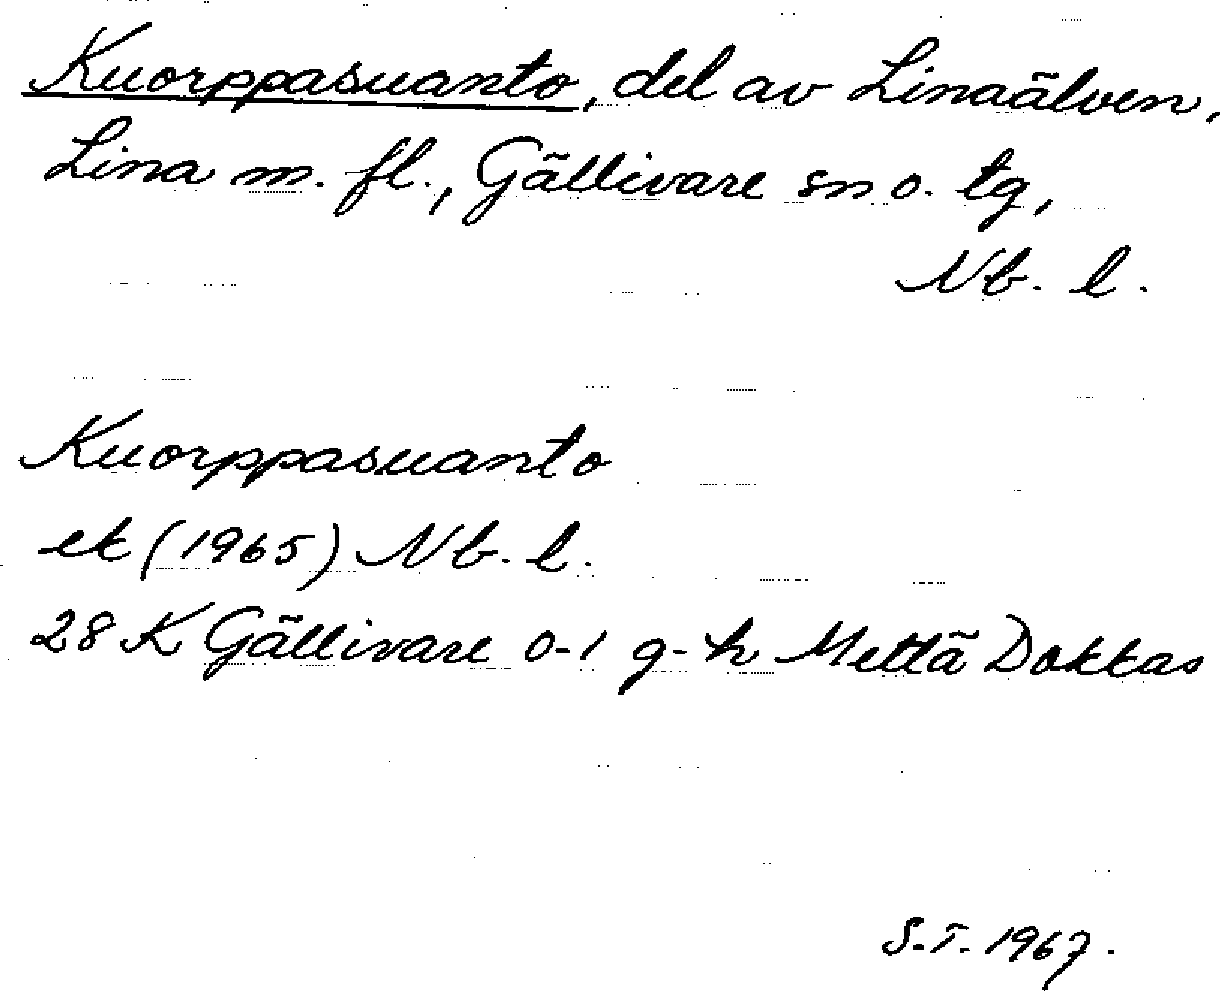 Kuorppasuanto, del av Linaälven,
Lina m. fl., Gällivare sn o. tg,
Nb. l.
Kuorppasuanto
ek (1965) Nb. l.
28 K Gällivare 0-1 g-h Mettä Dokkas
S.T. 1967.